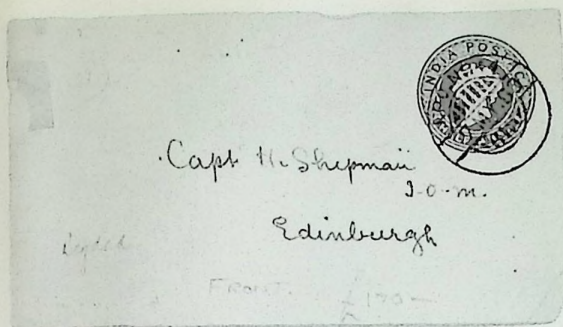 INDIA POSTAGE
Capt H. Shepmaii
I.O.M.
Edinburgh
FRONT.
£170-